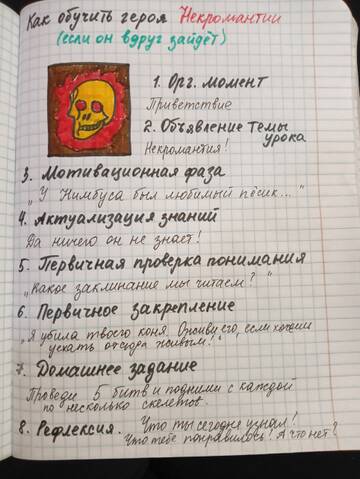 Как обучить героя Некромантии
(если он вдруг зайдёт)
1. Орг. момент
Приветствие
2. Объявление темы
урока
Некромантия!
3. Мотивационная фаза
"У Нимбуса был любимый пёсик..."
4. Актуализация знаний
Да ничего он не знает!
5. Первичная проверка понимания
"Какое заклинание мы читаем?"
6. Первичное закрепление
"Я убила твоего коня. Оживи его, если хочешь
ускать отсюда живым!"
7. Домашнее задание
Проведи 5 битв и подними с каждой
по несколько скелетов.
8. Рефлексия. Что ты сегодня узнал!
Что тебе понравилось! А что нет?